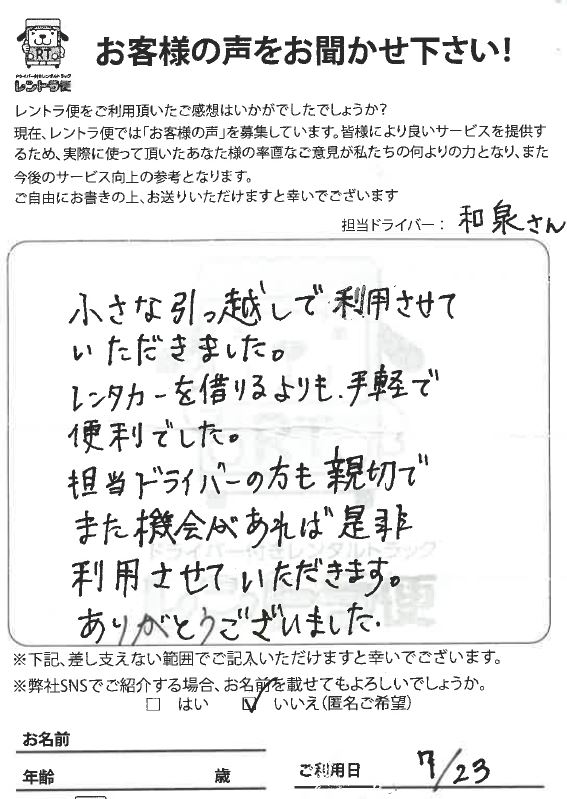 RT
ドライバー付きレンタルトラック
レントラ便
お客様の声をお聞かせ下さい!
レントラ便をご利用頂いたご感想はいかがでしたでしょうか?
現在、レントラ便では「お客様の声」を募集しています。皆様により良いサービスを提供す
るため、実際に使って頂いたあなた様の率直なご意見が私たちの何よりの力となり、また
今後のサービス向上の参考となります。
ご自由にお書きの上、お送りいただけますと幸いでございます
担当ドライバー: 和泉さん
小さな引っ越しで利用させて
いただきました。
レンタカーを借りるよりも、手軽で
便利でした。
担当ドライバーの方も親切で
また機会があれば是非
利用させていただきます。
ありがとうございました.
※下記、差し支えない範囲でご記入いただけますと幸いでございます。
※弊社SNSでご紹介する場合、お名前を載せてもよろしいでしょうか。
□ はい ☑ いいえ(匿名ご希望)
お名前
年齢 歳 ご利用日 7/23